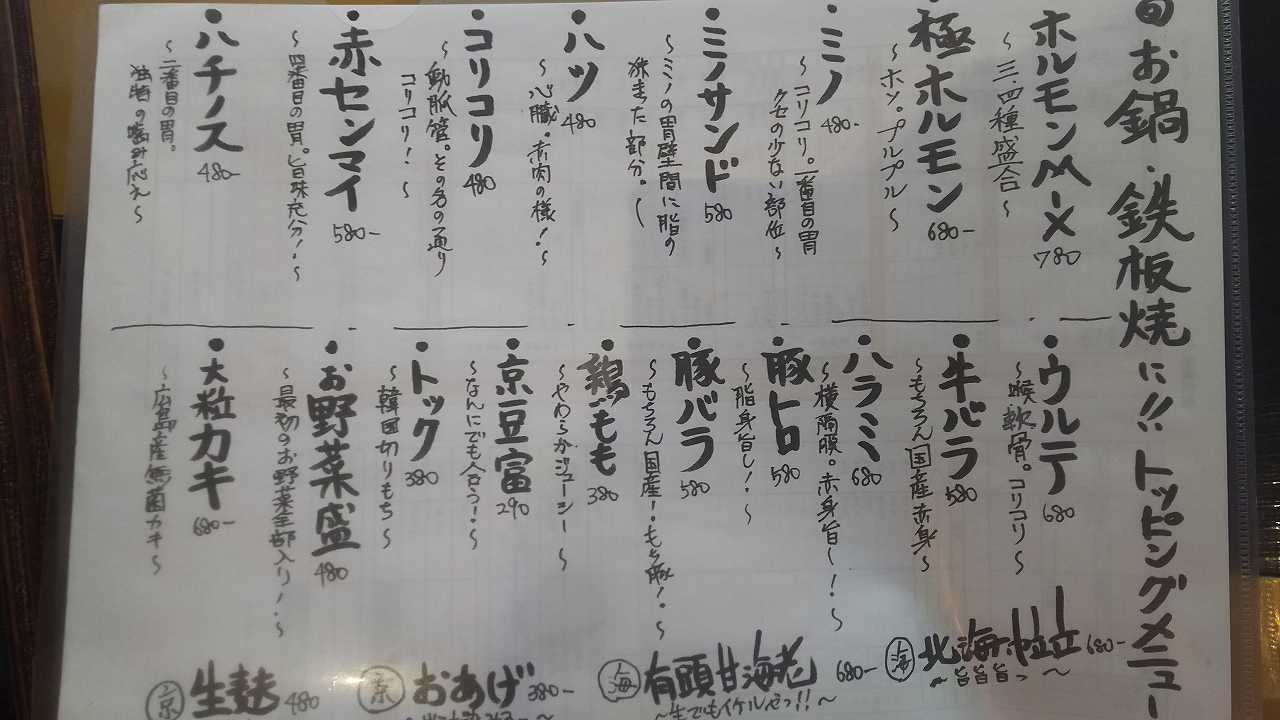 旬お鍋・鉄板焼に!!トッピングメニュー
・ホルモンMーX 780
～三、四種盛合～
・極ホルモン 680-
～ホソ。プルプル～
・ミノ 480-
～コリコリ。一番目の胃
クセの少ない部位～
・ミノサンド 580
～ミノの胃壁間に脂の
狭まった部分。～
・ハツ 480
～心臓・赤肉の様！～
・コリコリ 480
動脈管。その名の通り
コリコリ！～
・赤センマイ 580-
～四番目の胃。旨味充分！～
・ハチノス 480-
～二番目の胃。
独特の噛み応え～
・ウルテ 680
～喉軟骨。コリコリ～
・牛バラ 580
～もちろん国産赤身～
・ハラミ 680
～横隔膜。赤身旨し！～
・豚トロ 580
～脂身旨し！～
・豚バラ 580
～もちろん国産！もち豚！～
・鶏もも 380
～やわらかジューシー～
・京豆富 290
～なんにでも合う！～
・トック 380
～韓国切りもち～
・お野菜盛 480
～最初のお野菜全部入り！～
・大粒カキ 680-
～広島産無菌カキ～
海 北海 680-
～旨旨旨っ～
海 有頭甘海老 680-
～生でもイケルやつ!!～
京 おあげ 380-
京 生麩 480